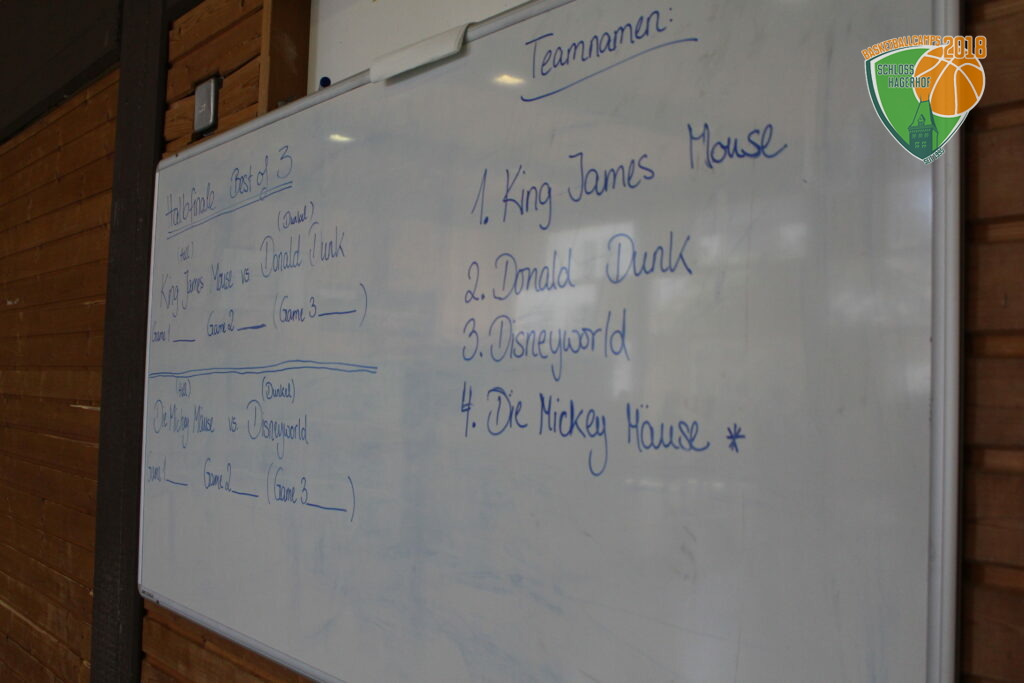 Teamnamen:
1. King James Mouse
2. Donald Dunk
3. Disneyworld
4. Die Mickey Mäuse *
Halbfinale Best of 3
(Hell) (Dunkel)
King James Mouse vs Donald Dunk
Game 1 ___ Game 2 ___ (Game 3 ___)
(Hell) (Dunkel)
Die Mickey Mäuse vs. Disneyworld
Game 1 ___ Game 2 ___ (Game 3 ___)
BASKETBALLCAMPS 2018
SCHLOSS
HAGERHOF